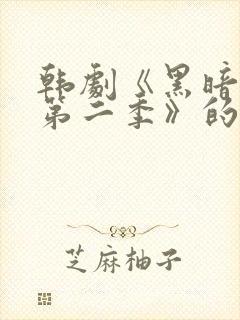 韩劇《黑暗
第二季》的
芝麻柚子